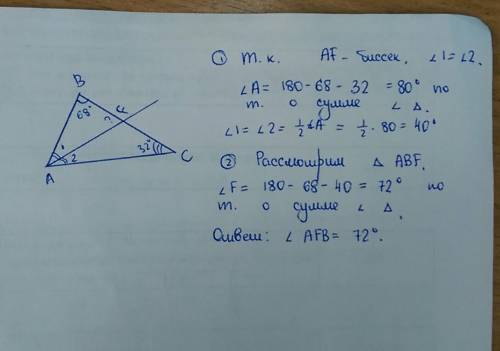 ① т.к. AF - биссек. ∠1=∠2.
∠A= 180-68-32 =80° по
т. о сумме ∠ △.
∠1=∠2= ½∠A = ½·80=40°
② Рассмотрим △ ABF.
∠F= 180-68-40=72° по
т. о сумме ∠ △.
Ответ: ∠ AFB= 72°.
B
68°
?
F
1
2
32°
A
C